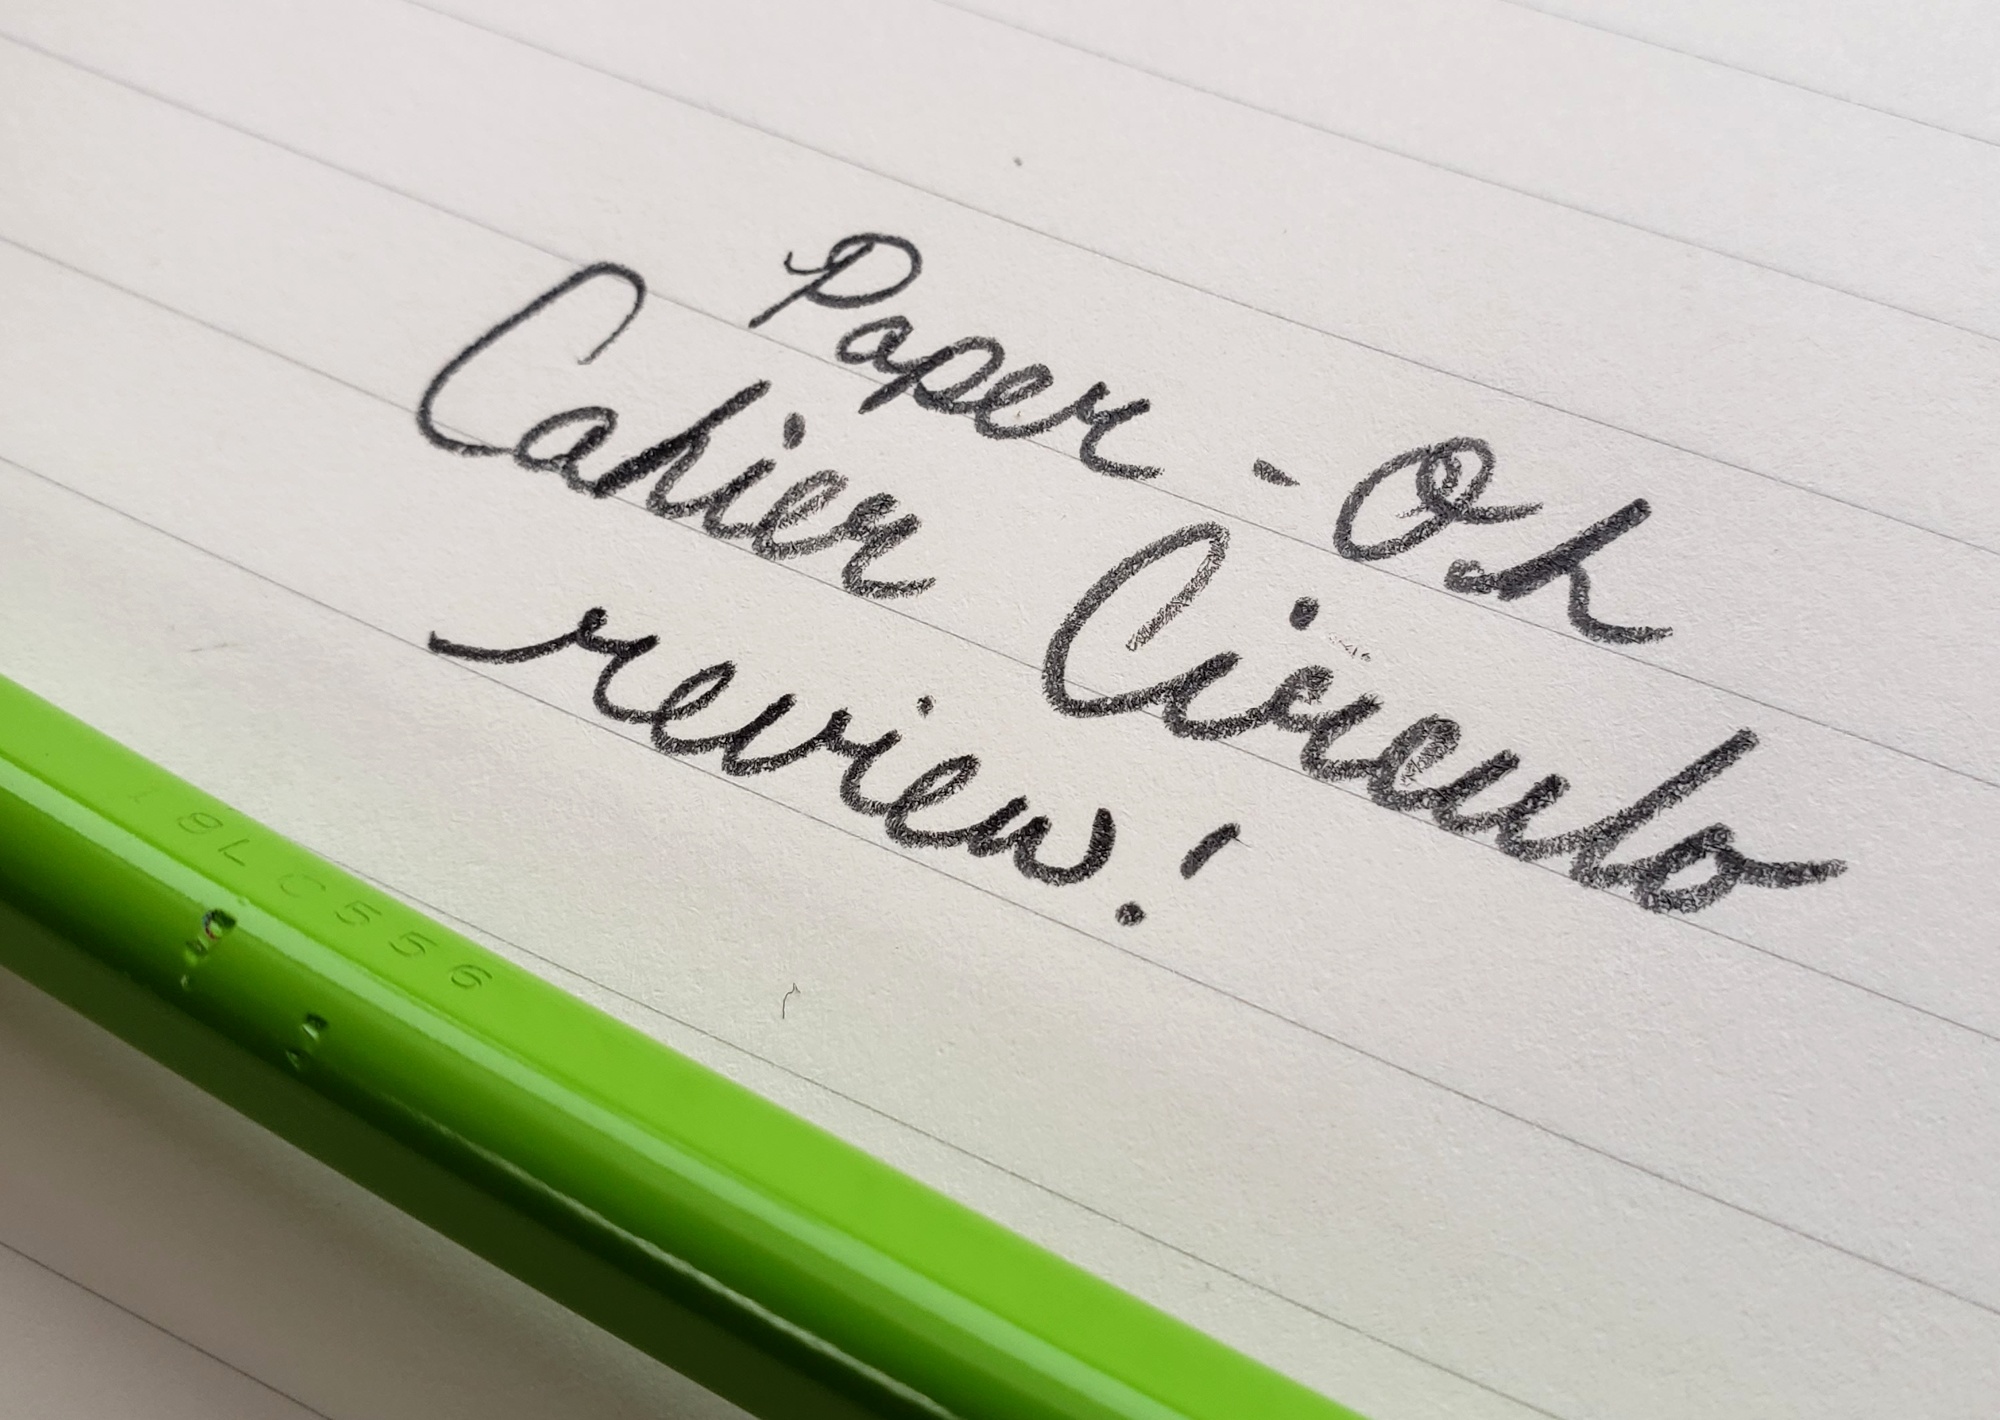 Paper-Oh
Cahier Circulo
review!